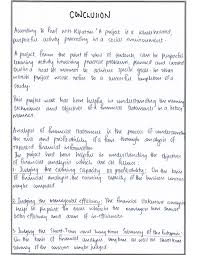 CONCLUSION
According to Prof. "A project is a
activity proceeding in a social environment".
A project from the point of view of students, can be purposeful
learning activity involving practical problems, planned and
out in
project work refers to a successful completion of a
study.
This project work has been helpful in understanding the meaning
and objectives of financial statements in a better
manner.
Analysis of financial statement is the process of understanding
the risk and profitability of a firm through analysis of
reported financial information.
The project has been helpful in understanding the objectives
of financial analysis which are as follows:-
1. Judging the earning capacity or profitability: On the basis
of financial analysis the earning capacity of the business concern
maybe computed.
2. Judging the managerial efficiency: The financial statement analysis
helps to pinpoint the areas wherein the managers have shown
better efficiency and areas of in-efficiency.
3. Judging the Short-Term and Long-Term Solvency of the Enterprise:
On the basis of financial analysis long-term as well as short-term
solvency of the business maybe judged.